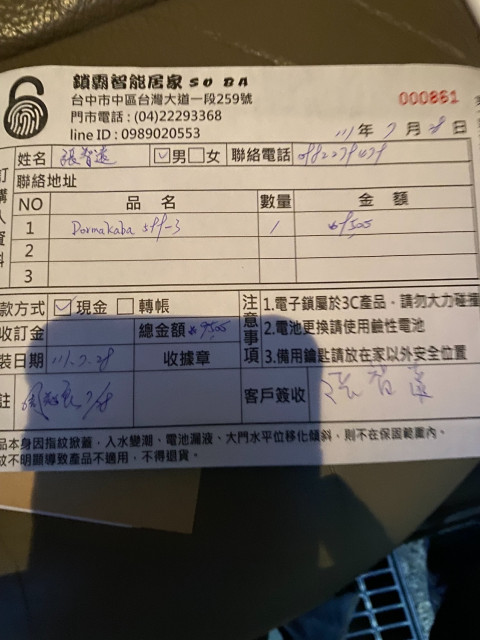 鎖霸智能居家 SO BA
台中市中區台灣大道一段259號
門市電話:(04)22293368
line ID : 0989020553
000861
111年7月28日
姓名 ☑男☐女 聯絡電話
聯絡地址
NO 品名 數量 金額
1 Dormakaba 1
2
3
款方式 ☑現金 ☐轉帳
收訂金 總金額
裝日期 111.7.28 收據章
註
注意事項
1.電子鎖屬於3C產品,請勿大力碰撞
2.電池更換請使用鹼性電池
3.備用鑰匙請放在家以外安全位置
客戶簽收
品本身因指紋掀蓋,入水變潮、電池漏液、大門水平位移化傾斜,則不在保固範圍內。
紋不明顯導致產品不適用,不得退貨。